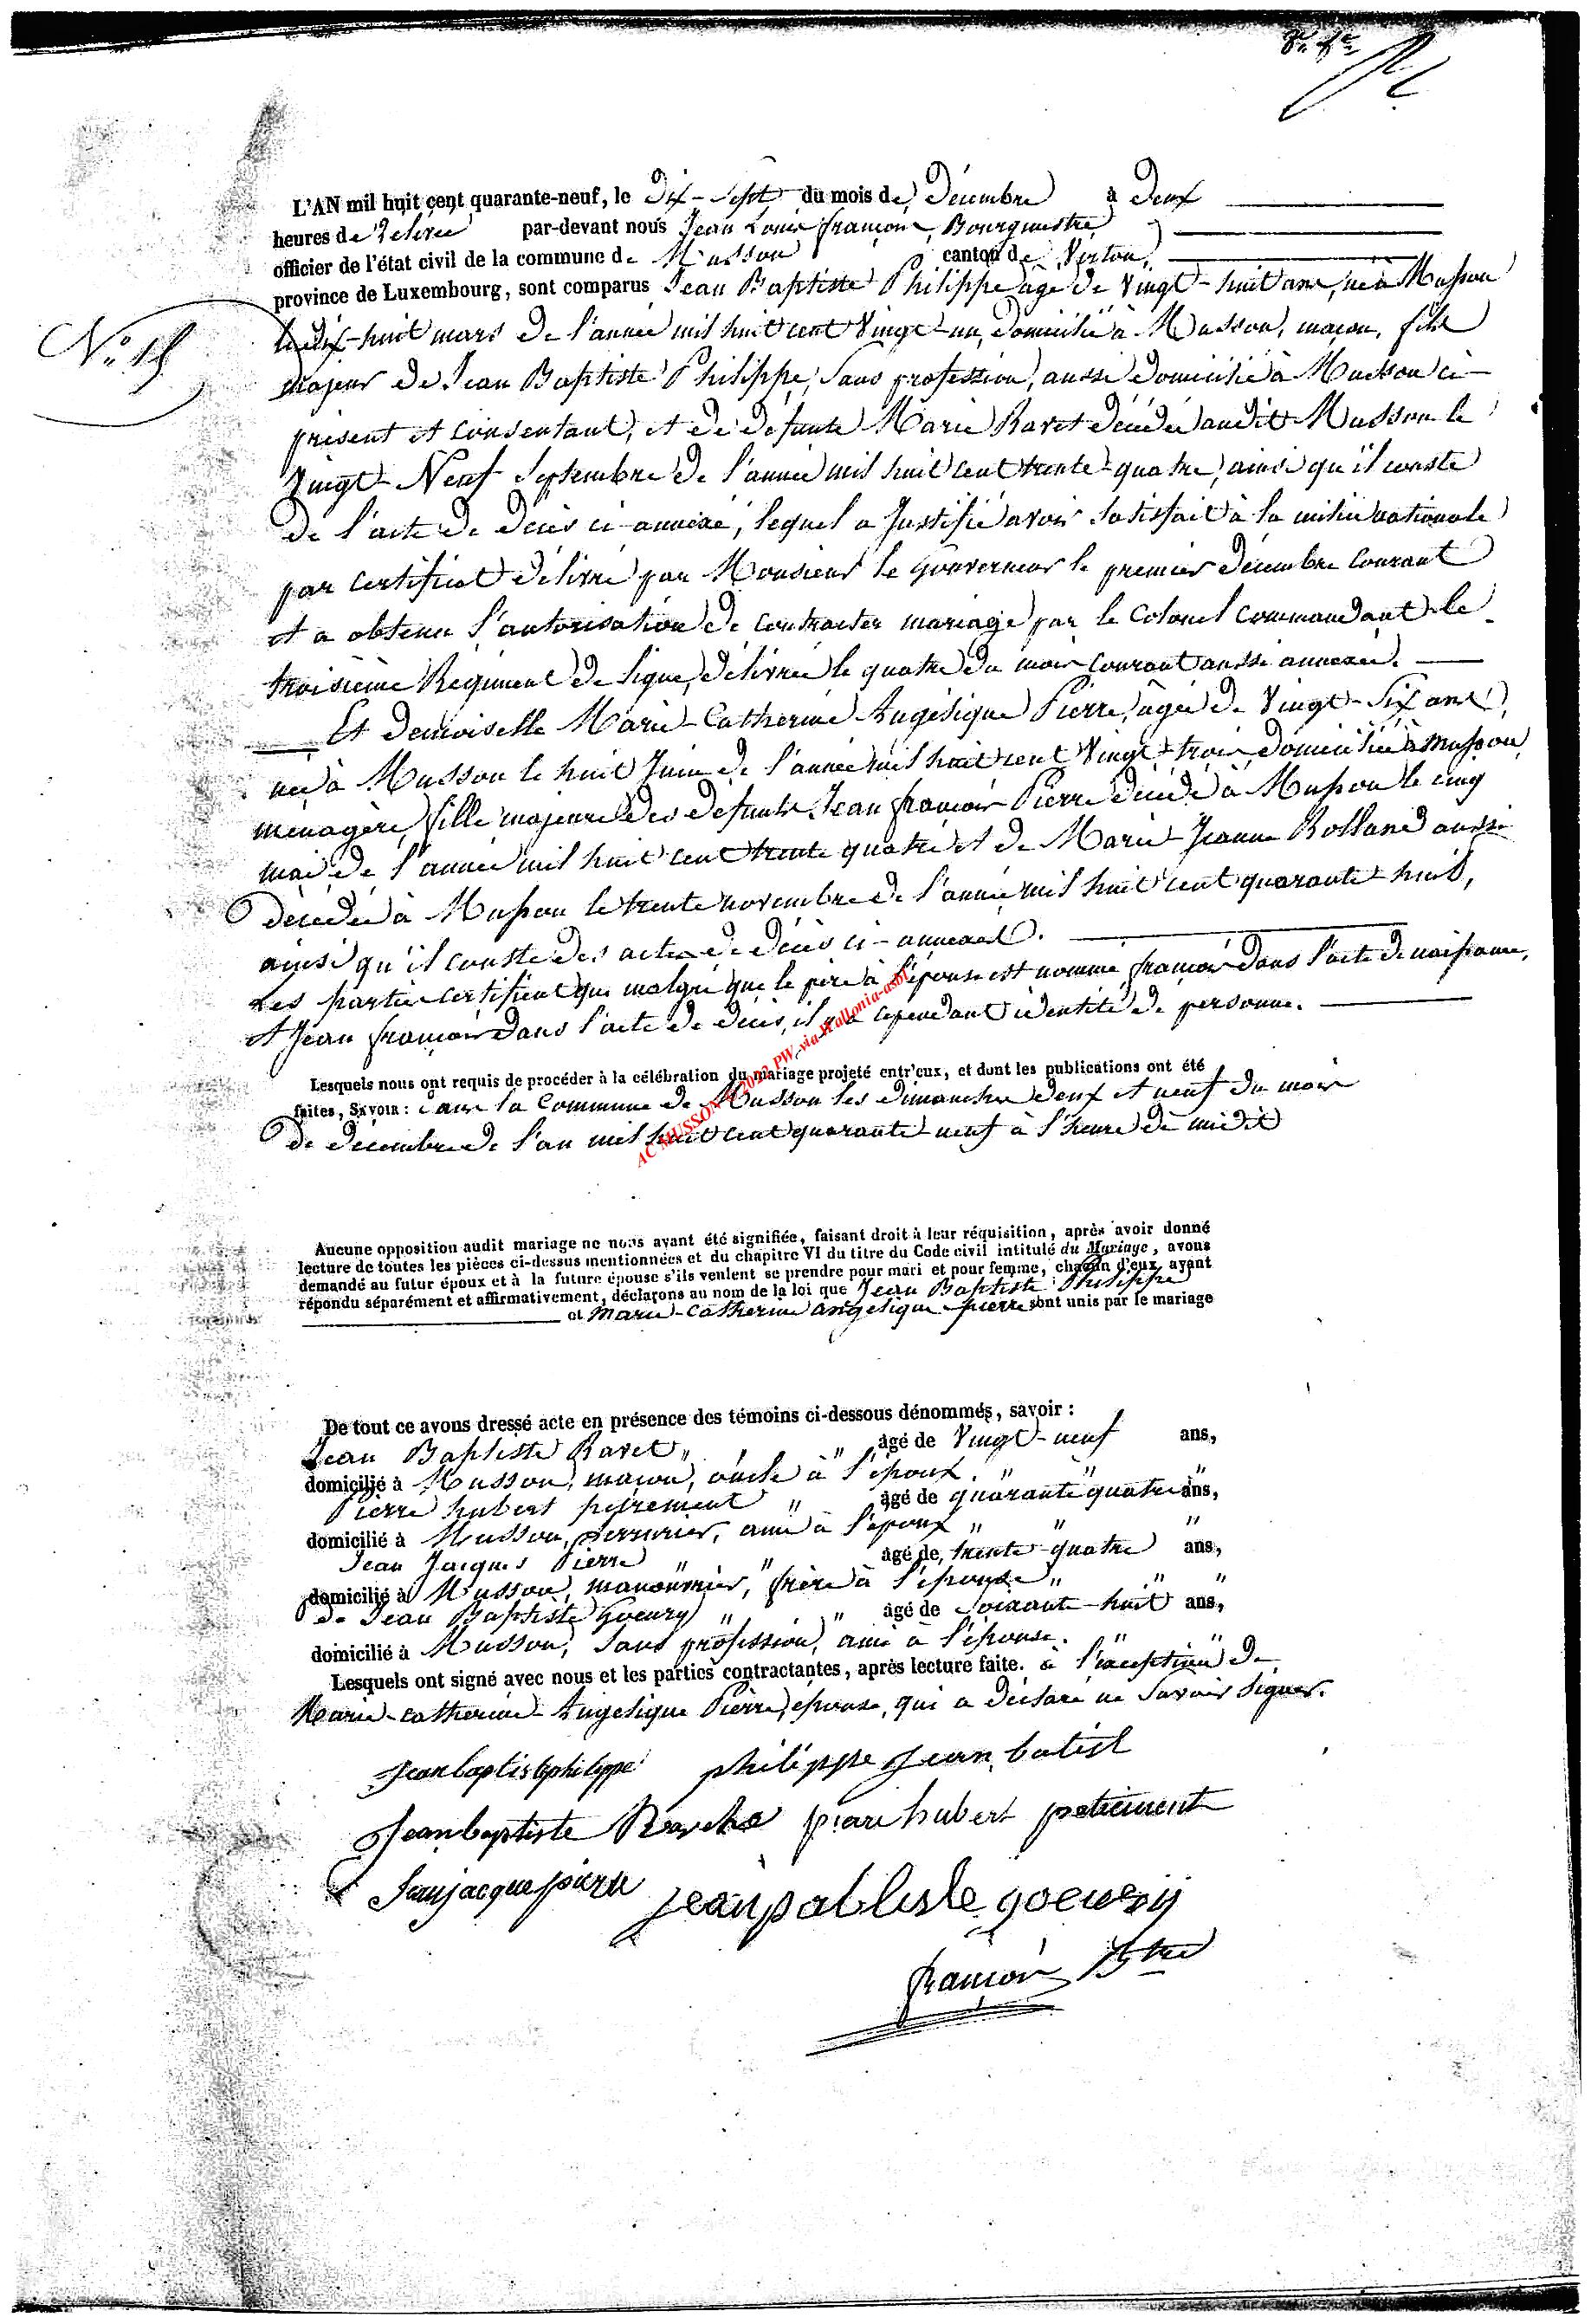 N.º 15
L'AN mil huit cent quarante-neuf, le Dix-Sept du mois de Décembre à Deux
heures de Relevée par-devant nous Jean Louis françois, Bourgmestre
officier de l'état civil de la commune de Musson canton de Virton,
province de Luxembourg, sont comparus Jean Baptiste Philippe âgé de Vingt-huit ans, né à Musson
le dix-huit mars de l'année mil huit cent Vingt-un, domicilié à Musson, maçon, fils
majeur de Jean Baptiste Philippe, Sans profession, aussi domicilié à Musson ci-
présent et consentant, et de défunte Marie Ravet décédée audit Musson le
Vingt-Neuf Septembre de l'année mil huit cent trente-quatre, ainsi qu'il conste
de l'acte de décès ci-annexé, lequel a Justifié avoir satisfait à la milice nationale
par certificat délivré par Monsieur le Gouverneur le premier décembre Courant
et a obtenu l'autorisation de contracter mariage par le Colonel Commandant le
troisième Régiment de ligne, délivrée le quatre du mois courant aussi annexée.
Et demoiselle Marie-Catherine Angélique Pierre, âgée de Vingt-Six ans,
née à Musson le huit Juin de l'année mil huit cent Vingt-trois, domiciliée à Musson,
ménagère, fille majeure des défunts Jean françois Pierre décédé à Musson le cinq
mai de l'année mil huit cent trente quatre et de Marie-Jeanne Rolland aussi
décédée à Musson le trente novembre de l'année mil huit cent quarante-huit,
ainsi qu'il conste des actes de décès ci-annexés.
Les parties certifient que malgré que le père à l'épouse est nommé françois dans l'acte de naissance,
et Jean françois dans l'acte de décès, il y a cependant identité de personne.
AC MUSSON 2022 PW via Wallonia-asbl
Lesquels nous ont requis de procéder à la célébration du mariage projeté entr'eux, et dont les publications ont été
faites, SAVOIR : dans la Commune de Musson les dimanches deux et neuf du mois
de décembre de l'an mil huit cent quarante-neuf à l'heure de midi
Aucune opposition audit mariage ne nous ayant été signifiée, faisant droit à leur réquisition, après avoir donné
lecture de toutes les pièces ci-dessus mentionnées et du chapitre VI du titre du Code civil intitulé du Mariage, avons
demandé au futur époux et à la future épouse s'ils veulent se prendre pour mari et pour femme, chacun d'eux ayant
répondu séparément et affirmativement, déclarons au nom de la loi que Jean Baptiste Philippe
et Marie-Catherine Angelique pierre sont unis par le mariage
De tout ce avons dressé acte en présence des témoins ci-dessous dénommés, savoir :
Jean Baptiste Ravet " âgé de Vingt-neuf ans,
domicilié à Musson, maçon, oncle à l'époux. " " "
Pierre hubert petrement " âgé de quarante quatre ans,
domicilié à Musson, Serrurier, ami à l'époux " " "
Jean Jacques Pierre " " âgé de trente-quatre ans,
domicilié à Musson, manoeuvrier, frère à l'épouse " " "
de Jean Baptiste Goeury " " âgé de Soixante-huit ans,
domicilié à Musson, Sans profession, ami à l'épouse. " "
Lesquels ont signé avec nous et les parties contractantes, après lecture faite. à l'exception de
Marie-catherine-Angelique Pierre, épouse, qui a déclaré ne Savoir Signer.
Jeanbaptistephilippe philippe Jean batist
Jeanbaptiste piare hubert petrement
Jeanjacque pierre jeanpabtiste goeury
françois Bgtre